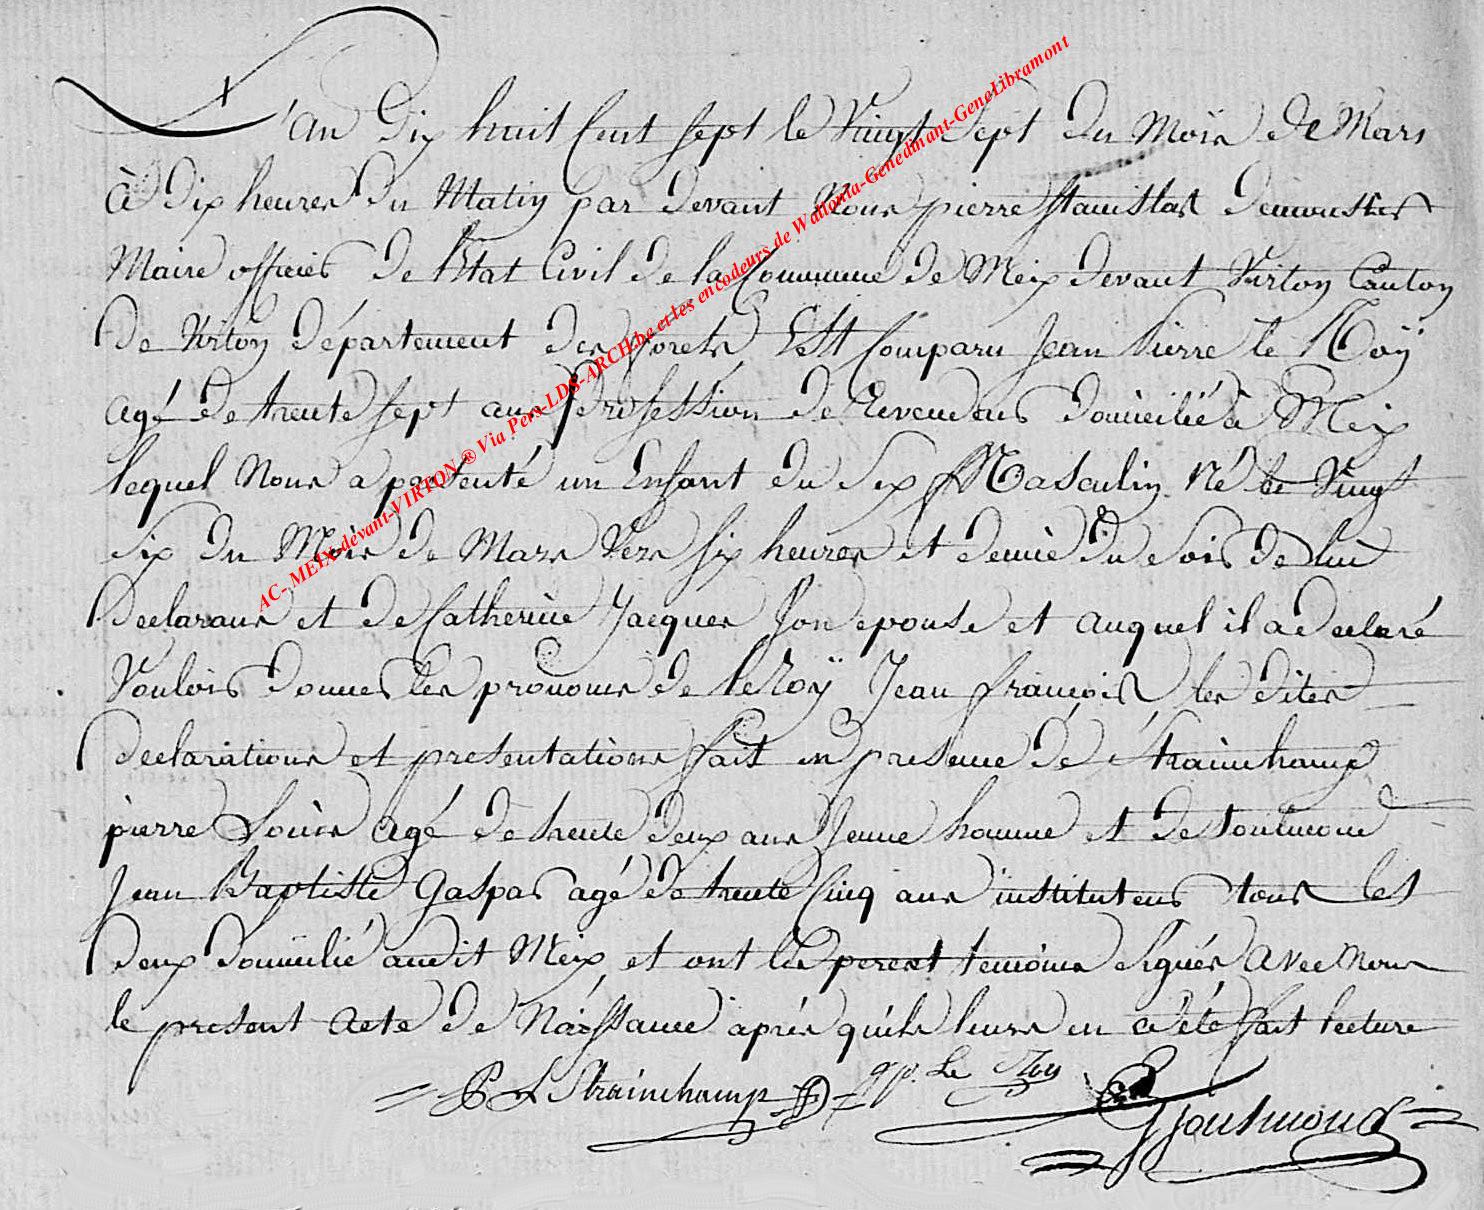 L'an dix huit Cent sept le Vingt Sept du Mois de Mars
à dix heures du Matin par devant Nous pierre stanislas demouster
Maire officier de l'Etat Civil de la Commune de Meix devant Virton Canton
de Virton département des forets Est Comparu Jean Pierre le Roÿ
agé de trente sept ans profession de Revendeur domicilié à Meix
lequel Nous a presenté un Enfant du Sex Masculin Né le Vingt
six du Mois de Mars Vers six heures et demie du Soir de lui
declarans et de Catherine Jacques son epouse et auquel il a declaré
Vouloir donner les pronoms de le Roÿ Jean françois les dites
declarations et presentations fait en presence de Strainchamp
pierre Louis agé de trente deux ans Jeune homme et de toulmond
Jean Baptiste Gaspar agé de trente Cinq ans instituteur tous les
deux domicilié audit Meix et ont les peres et temoins signés avec Nous
le present acte de Naissance après quils leurs en a été fait lecture
P L Strainchamp J p. Le Roy
Gjoulmond
AC- MEIX-devant-VIRTON ® Via Pers-LDS-ARCH.be et les encodeurs de Wallonia-Genedinant-GeneLibramont